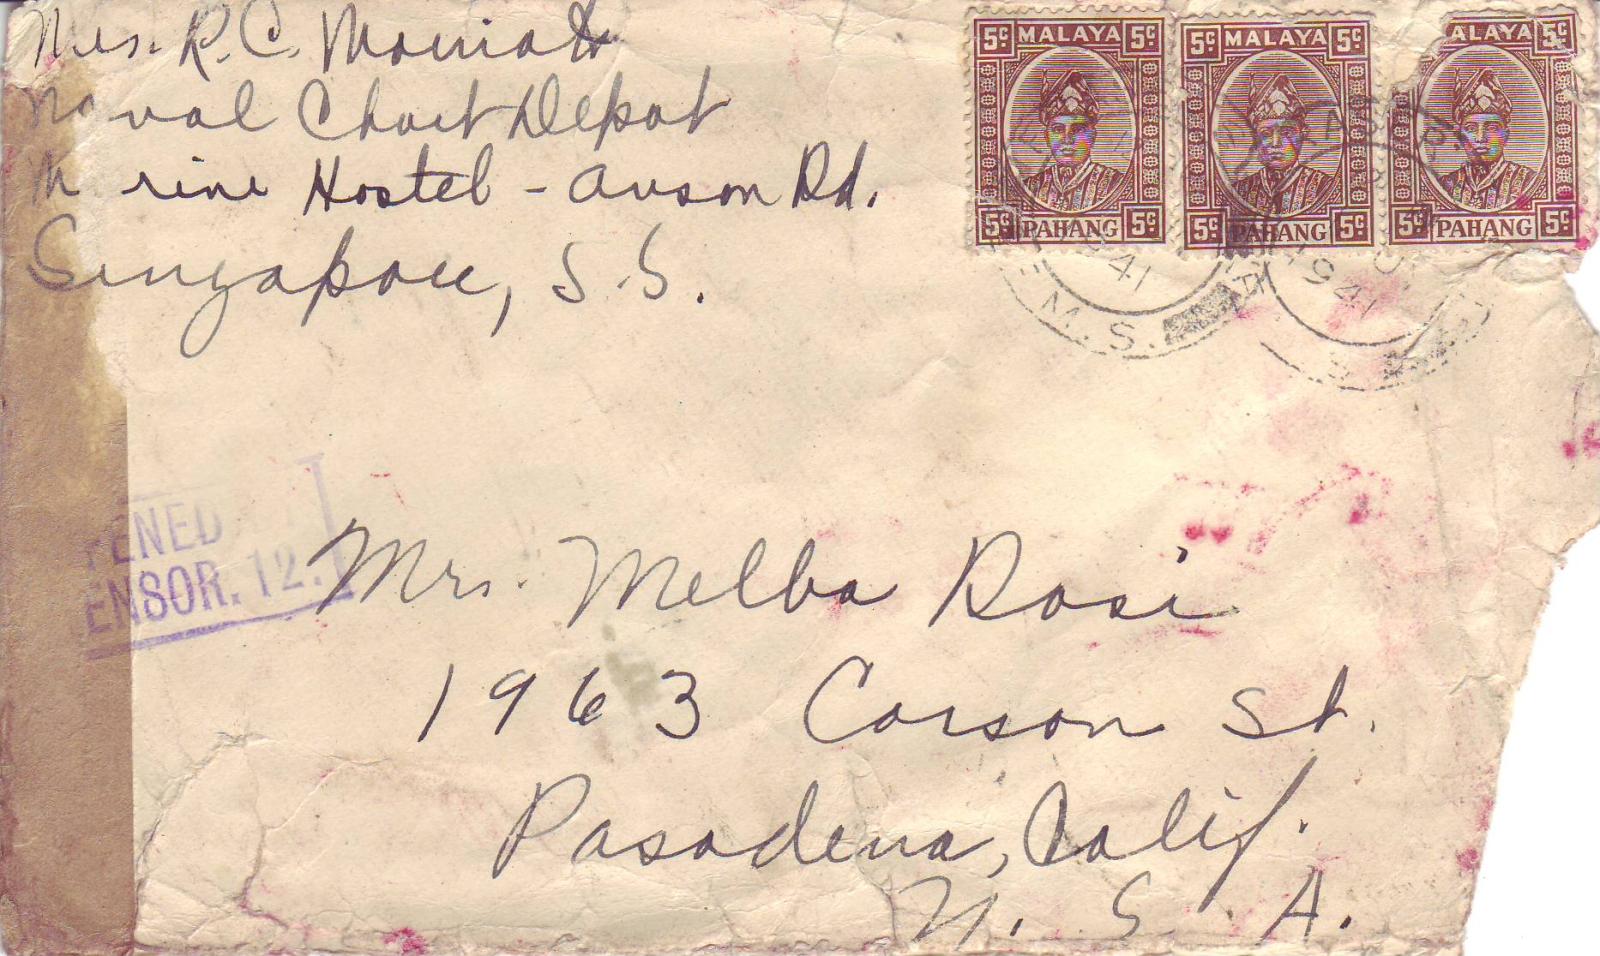 Mrs. R. C.
Naval Chart Depot
M rine Hostel - Anson Rd.
Singapore, S. S.
5c MALAYA 5c
5c PAHANG 5c
5c MALAYA 5c
5c PAHANG 5c
ALAYA 5c
5c PAHANG 5c
41
M.S.
1941
PENED
ENSOR. 12.
Mrs. Melba Rosi
1963 Corson St.
Pasadena, Calif.
U. S. A.